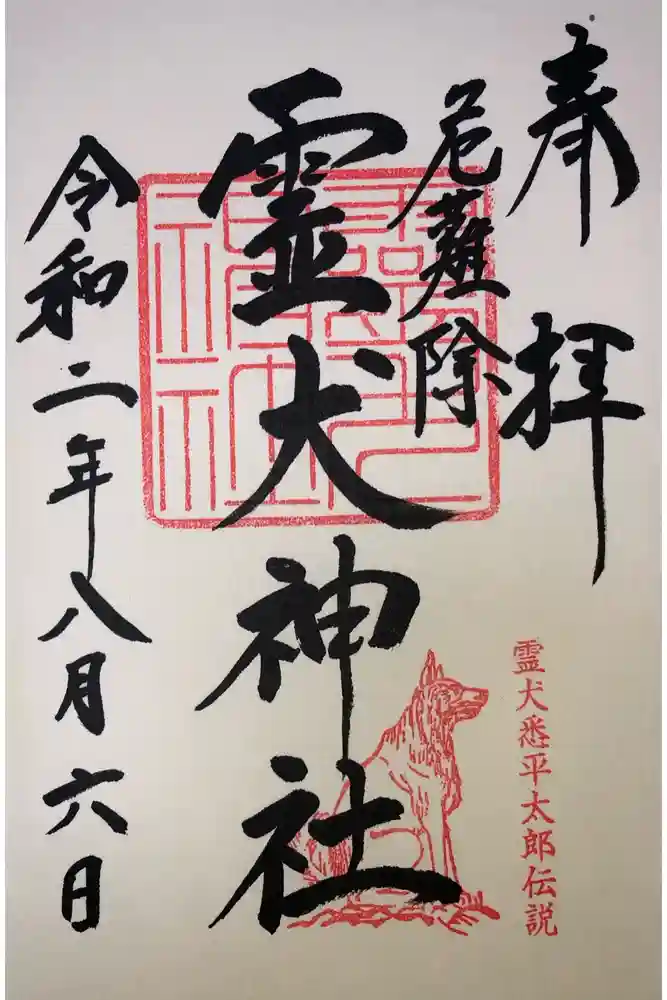 奉拝
厄難除
霊犬神社
霊犬悉平太郎伝説
令和二年八月六日